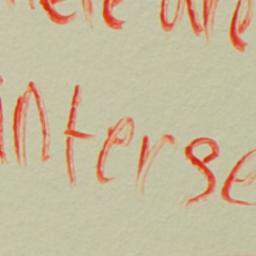 here are
interse